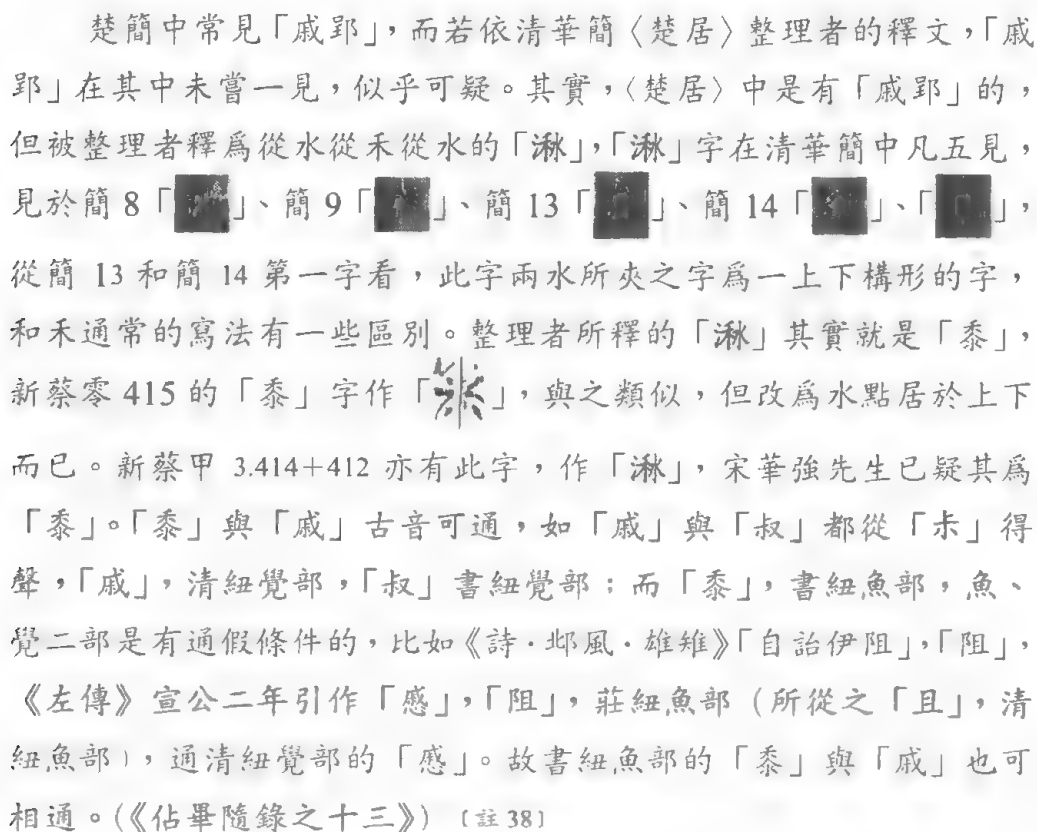 楚簡中常見「戚郢」，而若依清華簡〈楚居〉整理者的釋文，「戚
郢」在其中未嘗一見，似乎可疑。其實，〈楚居〉中是有「戚郢」的，
但被整理者釋爲從水從禾從水的「𣻌」，「𣻌」字在清華簡中凡五見，
見於簡 8「」、簡 9「」、簡 13「」、簡 14「」、「」，
從簡 13 和簡 14 第一字看，此字兩水所夾之字爲一上下構形的字，
和禾通常的寫法有一些區別。整理者所釋的「𣻌」其實就是「黍」，
新蔡零 415 的「黍」字作「」，與之類似，但改爲水點居於上下
而已。新蔡甲 3.414+412 亦有此字，作「𣻌」，宋華強先生已疑其爲
「黍」。「黍」與「戚」古音可通，如「戚」與「叔」都從「尗」得
聲，「戚」，清紐覺部，「叔」書紐覺部；而「黍」，書紐魚部，魚、
覺二部是有通假條件的，比如《詩·邶風·雄雉》「自詒伊阻」，「阻」，
《左傳》宣公二年引作「慼」，「阻」，莊紐魚部（所從之「且」，清
紐魚部），通清紐覺部的「慼」。故書紐魚部的「黍」與「戚」也可
相通。(《佔畢隨錄之十三》)〔註 38〕